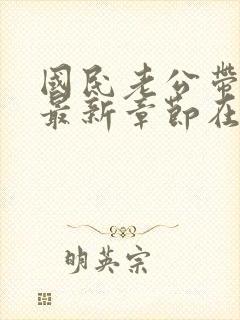 國民老公帶
最新章節在
明英宗